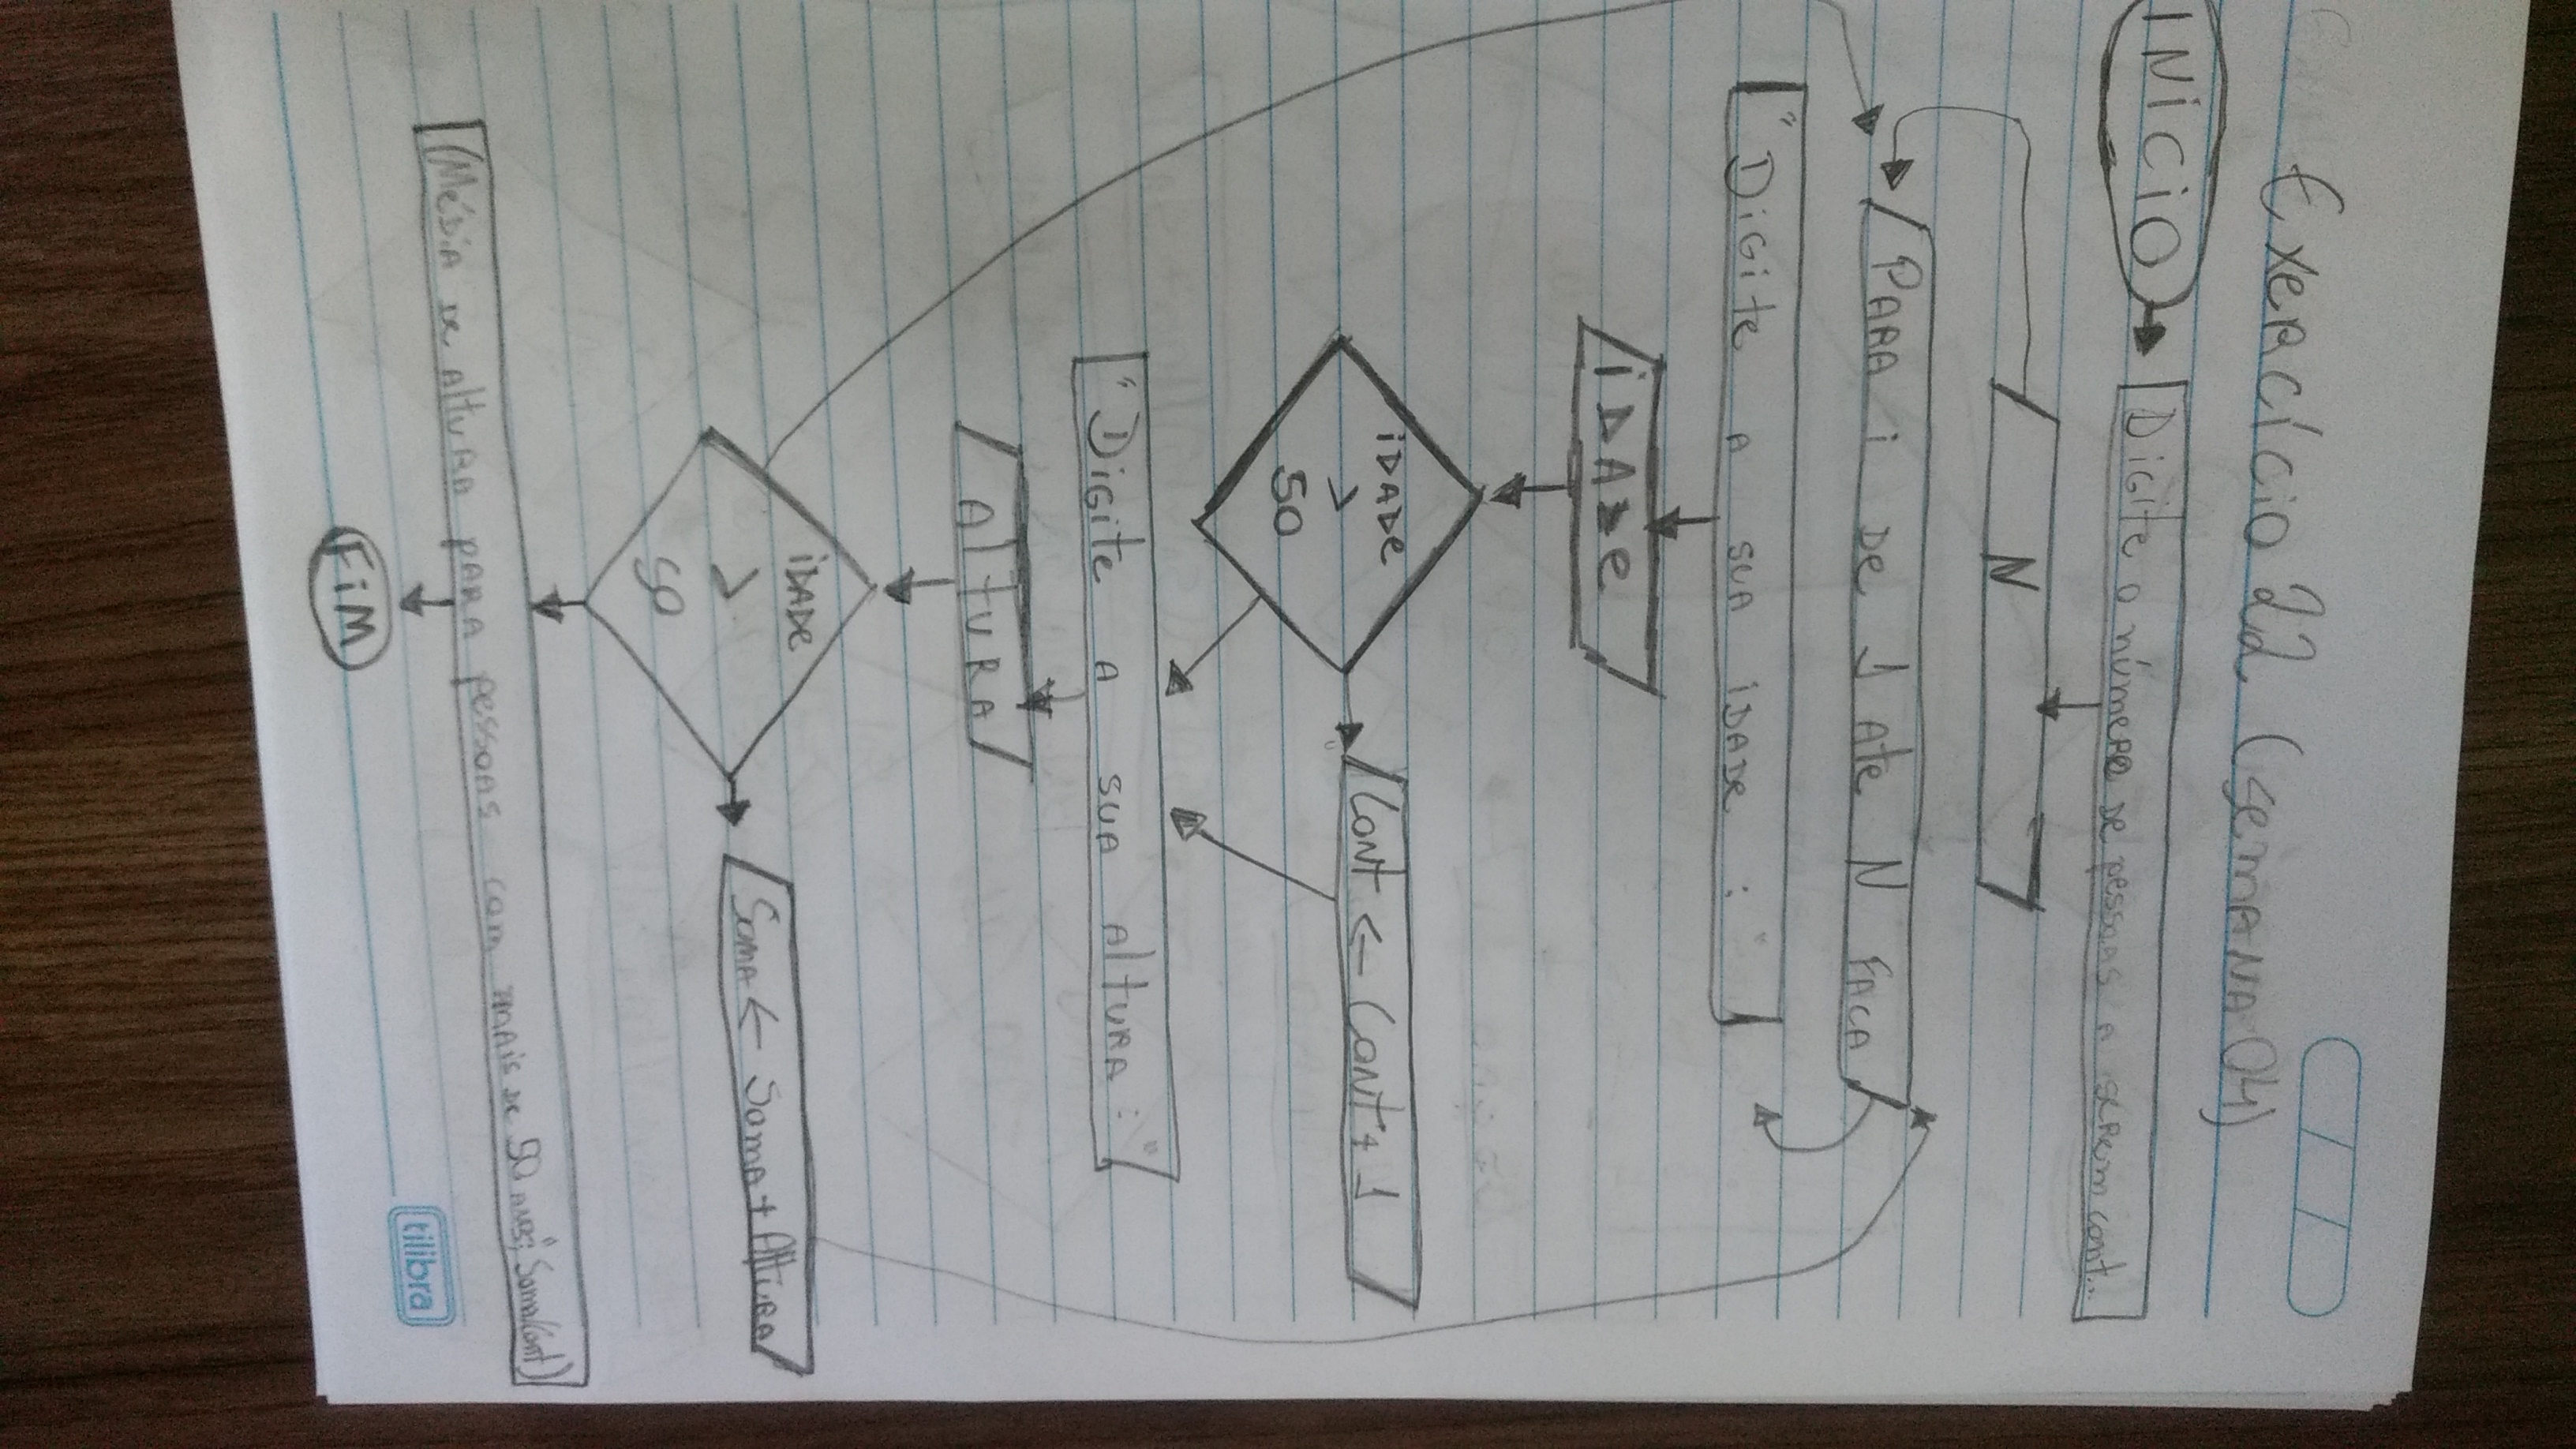 Exercício 22 (semana 04)
INICIO
Digite o número de pessoas a serem cont...
N
PARA i De 1 Ate N FACA
"Digite A SUA iDADe : "
iDADe
iDADe
>
50
Cont ← Cont + 1
"Digite A SUA AltURA : "
AltURA
iDADe
>
50
Soma ← Soma + AltURA
(Média de altura para pessoas com mais de 50 anos", Soma/Cont)
tilibra
FiM